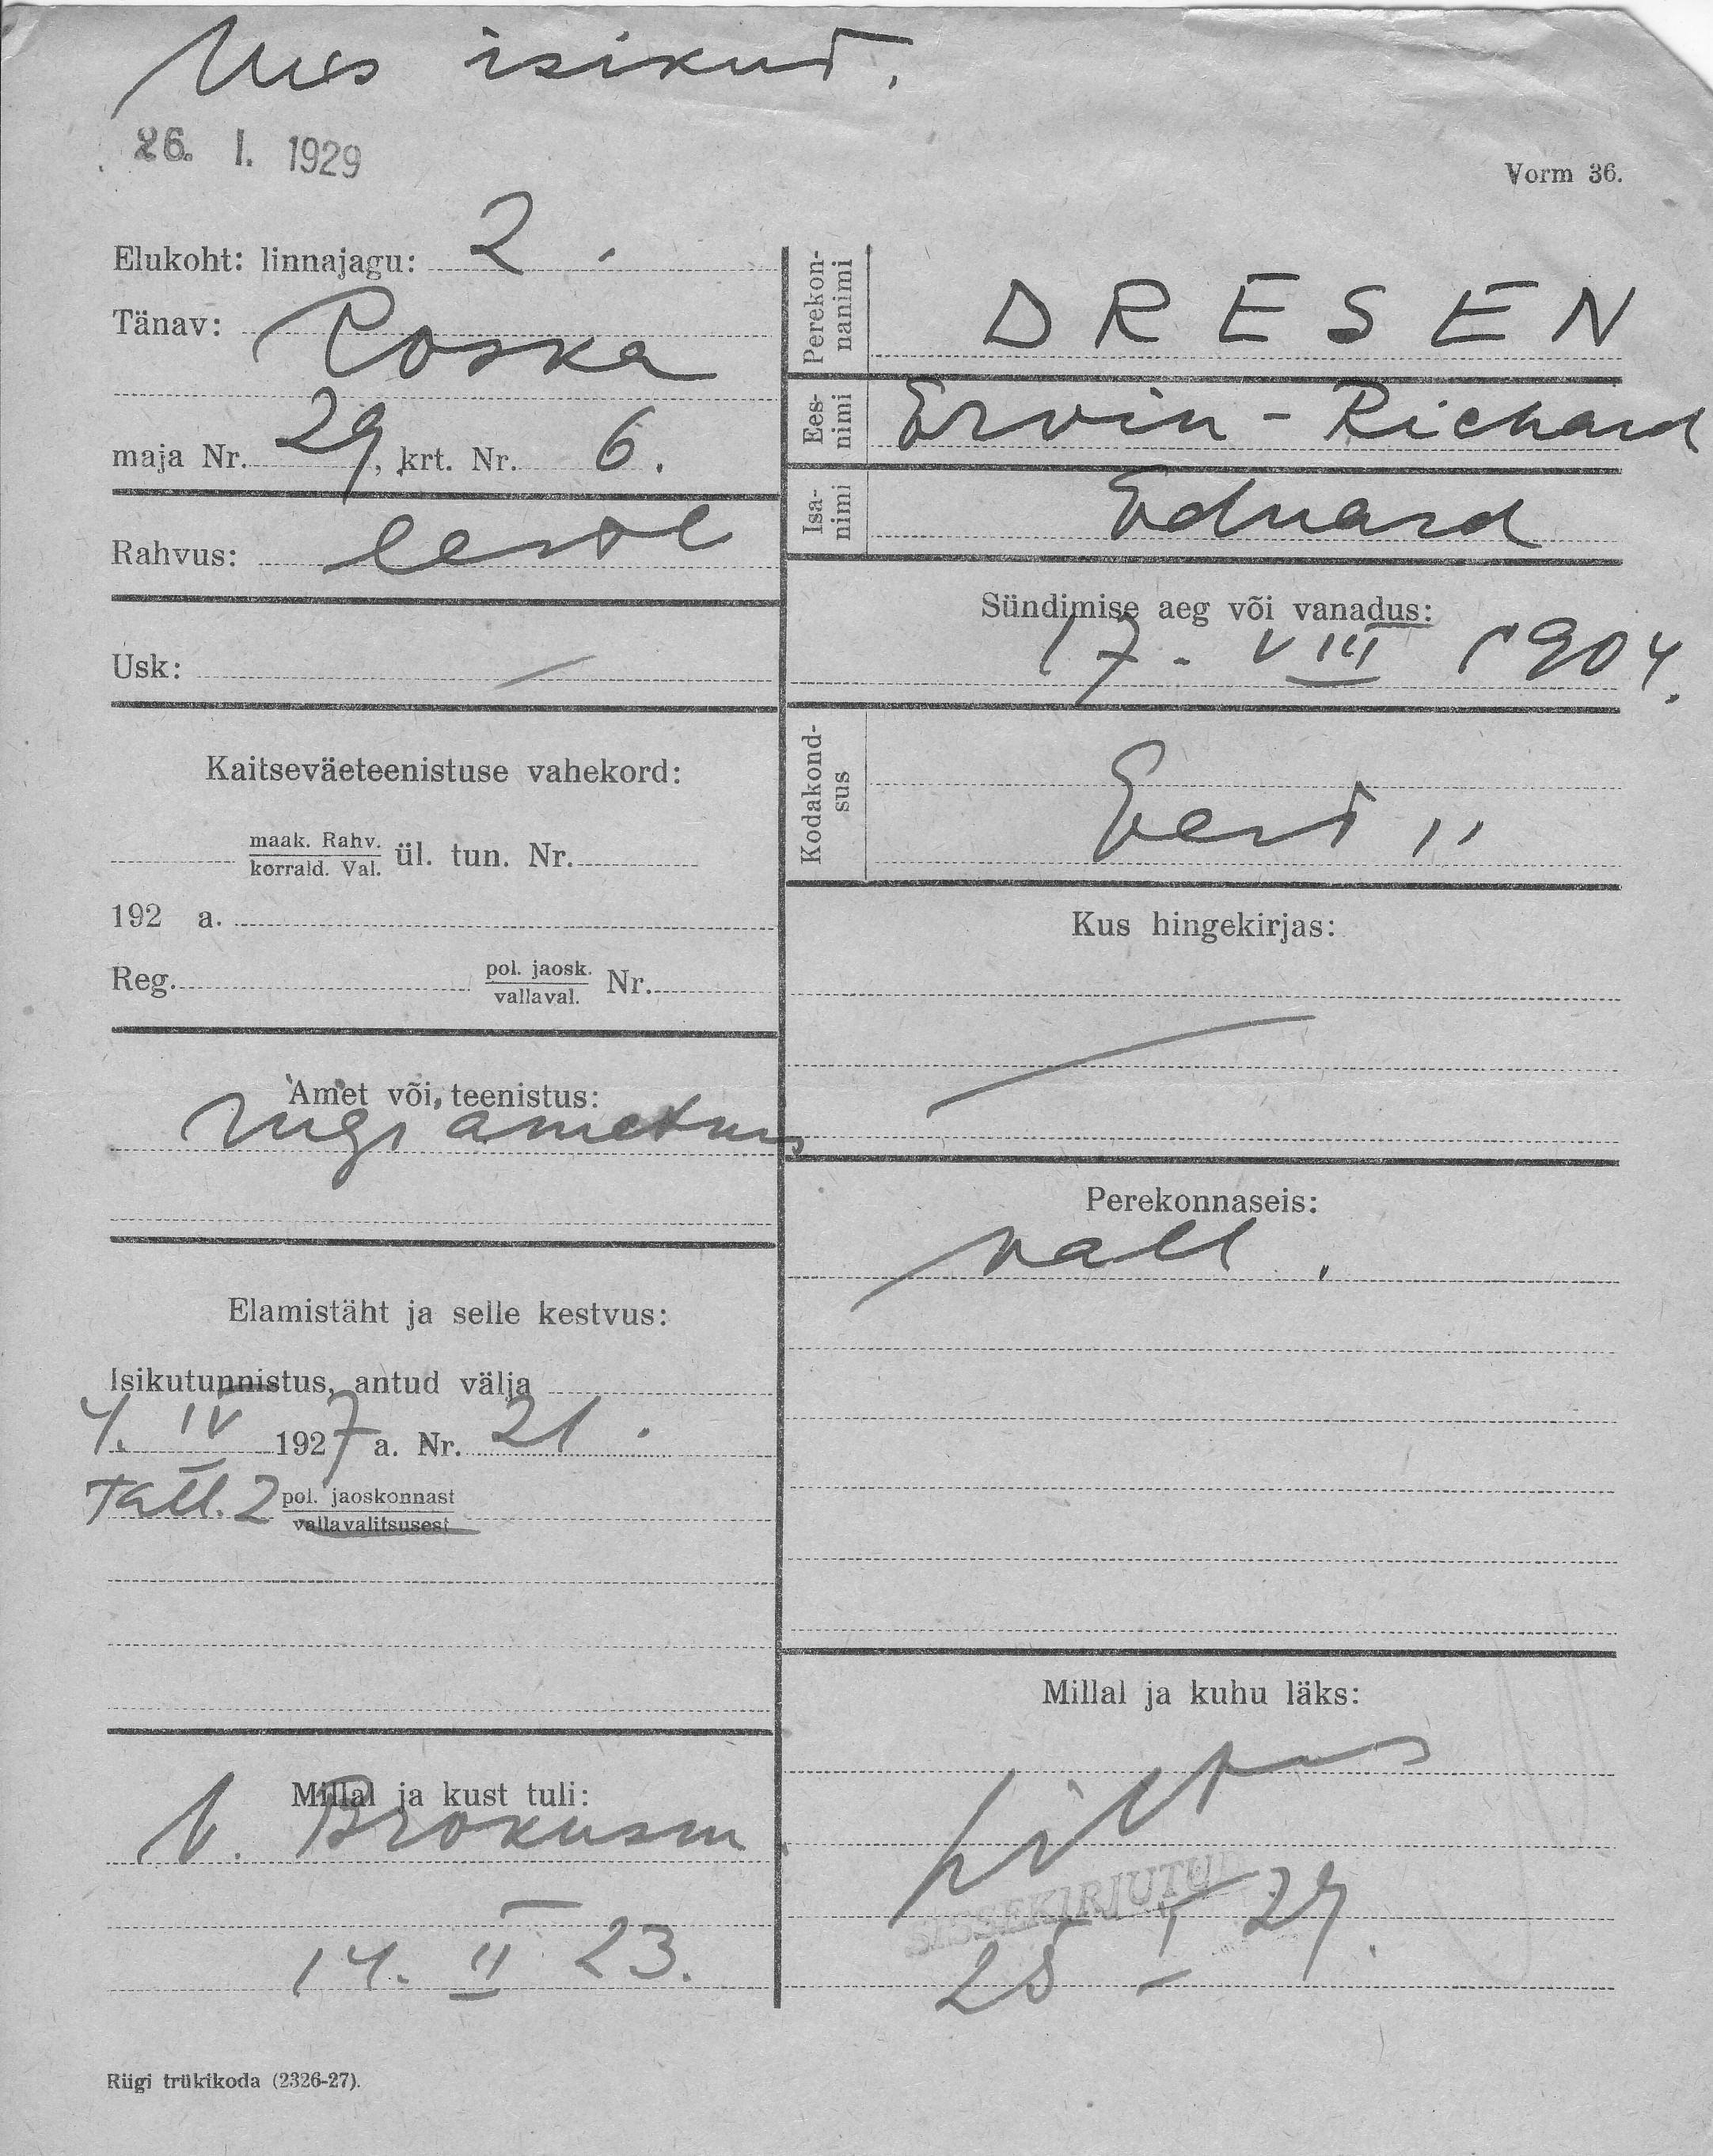 isikud.
26. I. 1929
Vorm 36.
Elukoht: linnajagu: 2.
Tänav: Poska
maja Nr. 29, krt. Nr. 6.
Rahvus: eestl
Usk: —
Kaitseväeteenistuse vahekord:
maak. Rahv.
korrald. Val.
ül. tun. Nr.
192 a.
Reg. pol. jaosk.
vallaval.
Nr.
Amet või teenistus:
riigi ametnik
Elamistäht ja selle kestvus:
Isikutunnistus, antud välja
4. IV 1927 a. Nr. 21.
Tall. 2 pol. jaoskonnast
vallavalitsusest
Millal ja kust tuli:
14. II 23.
Riigi trükikoda (2326-27).
Perekonnanimi
DRESEN
Eesnimi
Ervin-Richard
Isanimi
Eduard
Sündimise aeg või vanadus:
17. VIII 1904.
Kodakondsus
Eesti
Kus hingekirjas:
Perekonnaseis:
vall.
Millal ja kuhu läks:
SISSEKIRJUTUD
I 29.